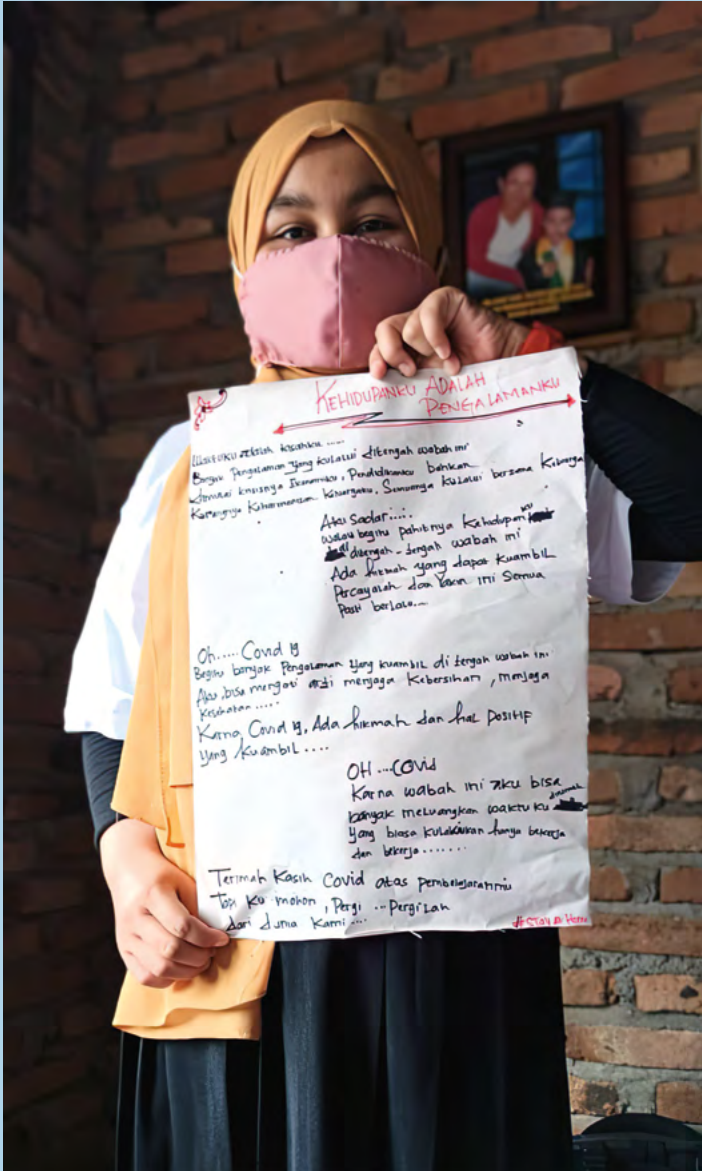 KEHIDUPANKU ADALAH
PENGALAMANKU
adalah kisahku.....
Banyak Pengalaman yang kulalui ditengah wabah ini
dimulai krisisnya Ekonomiku, Pendidikanku bahkan
Kurangnya Keharmonisan Keluargaku, Semuanya kulalui bersama Keluarga
Aku Sadari.....
walau begitu pahitnya Kehidupanku
ditengah-tengah wabah ini
Ada hikmah yang dapat kuambil
Percayalah dan Yakin ini Semua
Pasti berlalu....
Oh..... Covid 19
Begitu banyak Pengalaman yang kuambil di tengah wabah ini
Aku bisa mengerti arti menjaga Kebersihan, menjaga
Kesehatan.....
Karna Covid 19, Ada hikmah dan hal POSITIF
Yang Kuambil....
OH...COVID
Karna wabah ini aku bisa
banyak meluangkan waktu ku dirumah
Yang biasa kulakukan hanya bekerja
dan bekerja.......
Terimah Kasih Covid atas pembelajaranmu
Tapi Ku mohon, Pergi...Pergilah
dari dunia Kami...